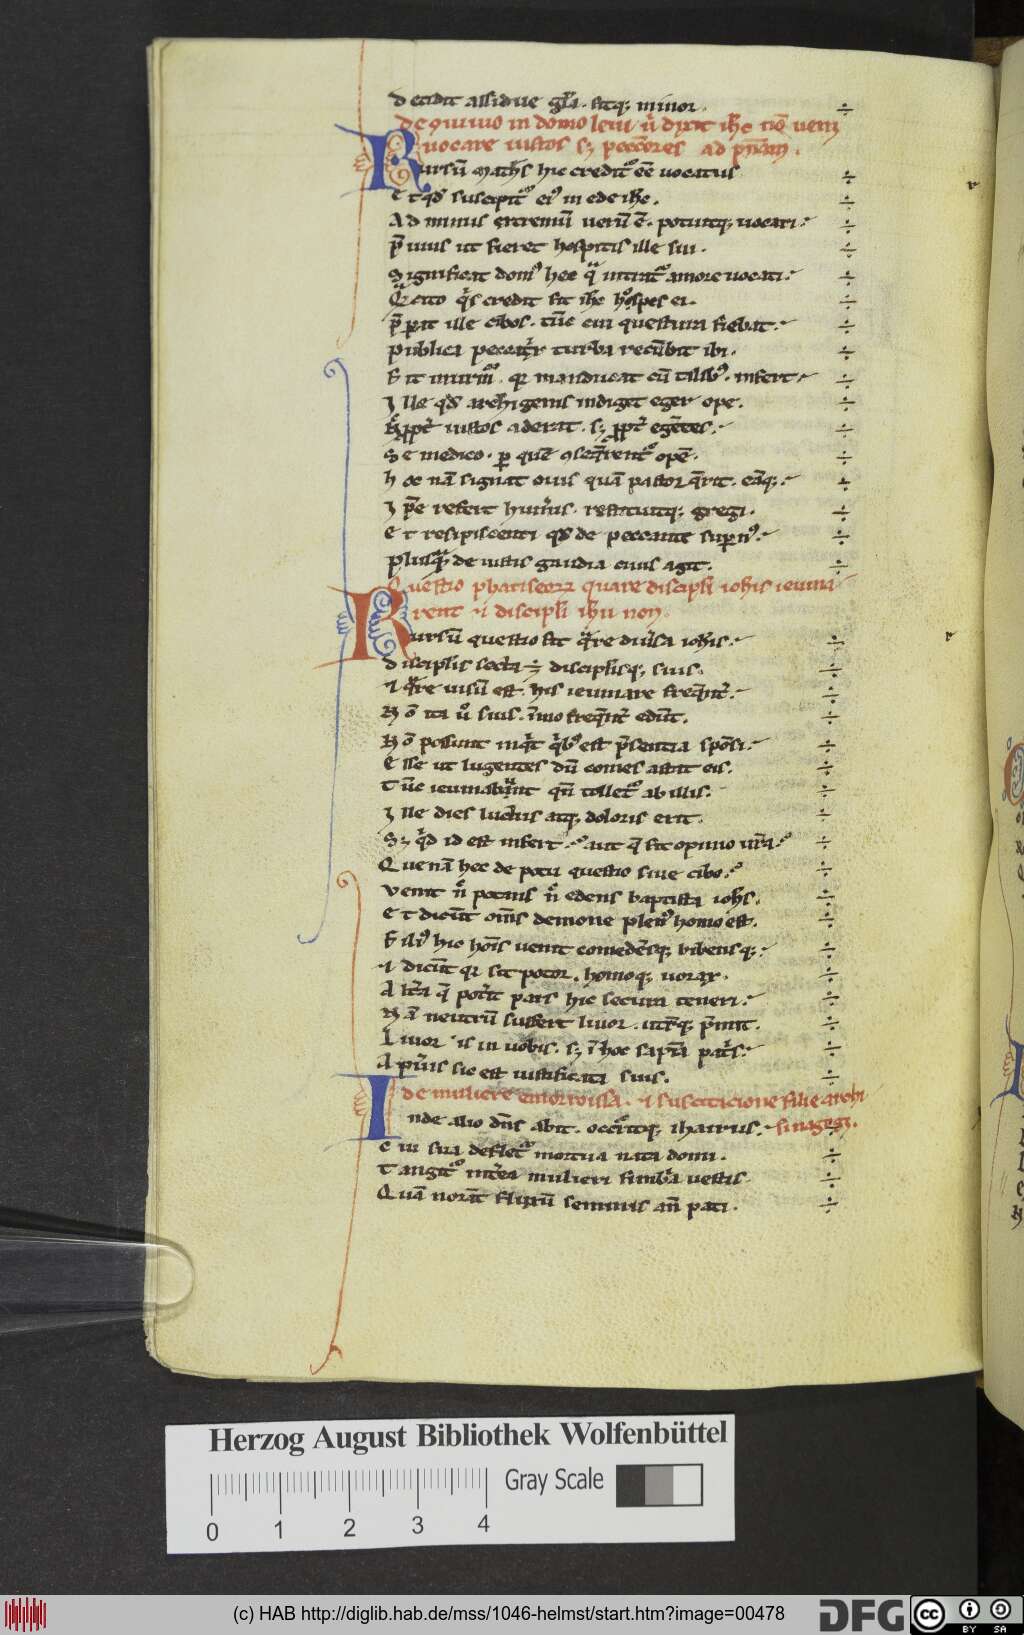 Decidit assidue gl̄a. sitq; minor.
De quiuio in domo leui. u̓ dixit ih̄c nō ueni
uocare iustos sꝫ peccōres ad pn̄iam.
Rursū Math̓s hic credit᷒ eē uocatus
Et qd̓ suscipit᷒ ei᷒ in ede ih̄c.
Ad minus extremū uerū ē. potuitq; uocari.
p̄uius ut fieret hospitis ille sui.
Significat dom᷒ hec
cito q̓s credit fit ih̄c hospes ei.
p̄parat ille cibos. tūc cui questura fiebat.
Publica turba recūbit ibi.
Fit murm᷒. qr manducat cū talib᷒. infert
Ille qd̓ archigenis indiget eger ope.
iustos aderat. sꝫ ꝓpt̓ egētes.
Se medico. ꝑ quē opē.
hoc nā signat ouis quā pastor q̄rit. eāq;
Ip̄e refert hum̓is. restituitq; gregi.
Et resipiscenti qd̓ de peccante
plusq̄ de iustis gaudia ciuis agit.
Questio phariseoꝝ quare discipl̓i ioh̓is ieiuna
rent ⁊ discipl̓i ih̄u non.
Rursū questio fit q̄re diu̓sa ioh̓is.
Discipl̓is secta ÷ discipl̓isq; suis.
⁊ q̄re uisū est his ieiunare freq̄nt̓.
Nō ita u̓o suis. īmo freq̄nt̓ edūt.
Nō possunt inq̓t q̓b᷒ est p̄sentia spōsi.
Esse ut lugentes dū comes astit eis.
Tūc ieiunabūt qn̄ tollet᷒ ab illis.
Ille dies luctus atq; doloris erit.
Sꝫ q̓d id est infert. aut q̄ sit opinio ur̄a.
Quenā hec de potu questio siue cibo.
Venit n̄ potans n̄ edens baptista ioh̓s.
Et dicūt om̄s demone plen᷒ homo est.
Fili᷒ hic hōis uenit comedēsq; bibensq;
⁊ dicūt qr sit potor. homoq; uorax.
Alt̓a q̄ pot̓it pars hic secura teneri.
Nā neutrū suffert liuor. utrūq; p̄mit.
Liuor is in uobis. sꝫ ī hoc sap̄ia pat̓s.
Apu̓is sic est iustificata suis.
De muliere emorroissa. ⁊ suscitacione filie archi
Inde alio dn̄s abit. occ̓ritq; ihairus. sinagogi.
Cui sua deflet᷒ mortua nata domi.
Tangit᷒ int̓ea mulieri fimb̓a uestis
Quā norāt fluxū seminis an̄ pati.
Herzog August Bibliothek Wolfenbüttel
Gray Scale
0 1 2 3 4
(c) HAB http://diglib.hab.de/mss/1046-helmst/start.htm?image=00478
DFG
cc BY SA